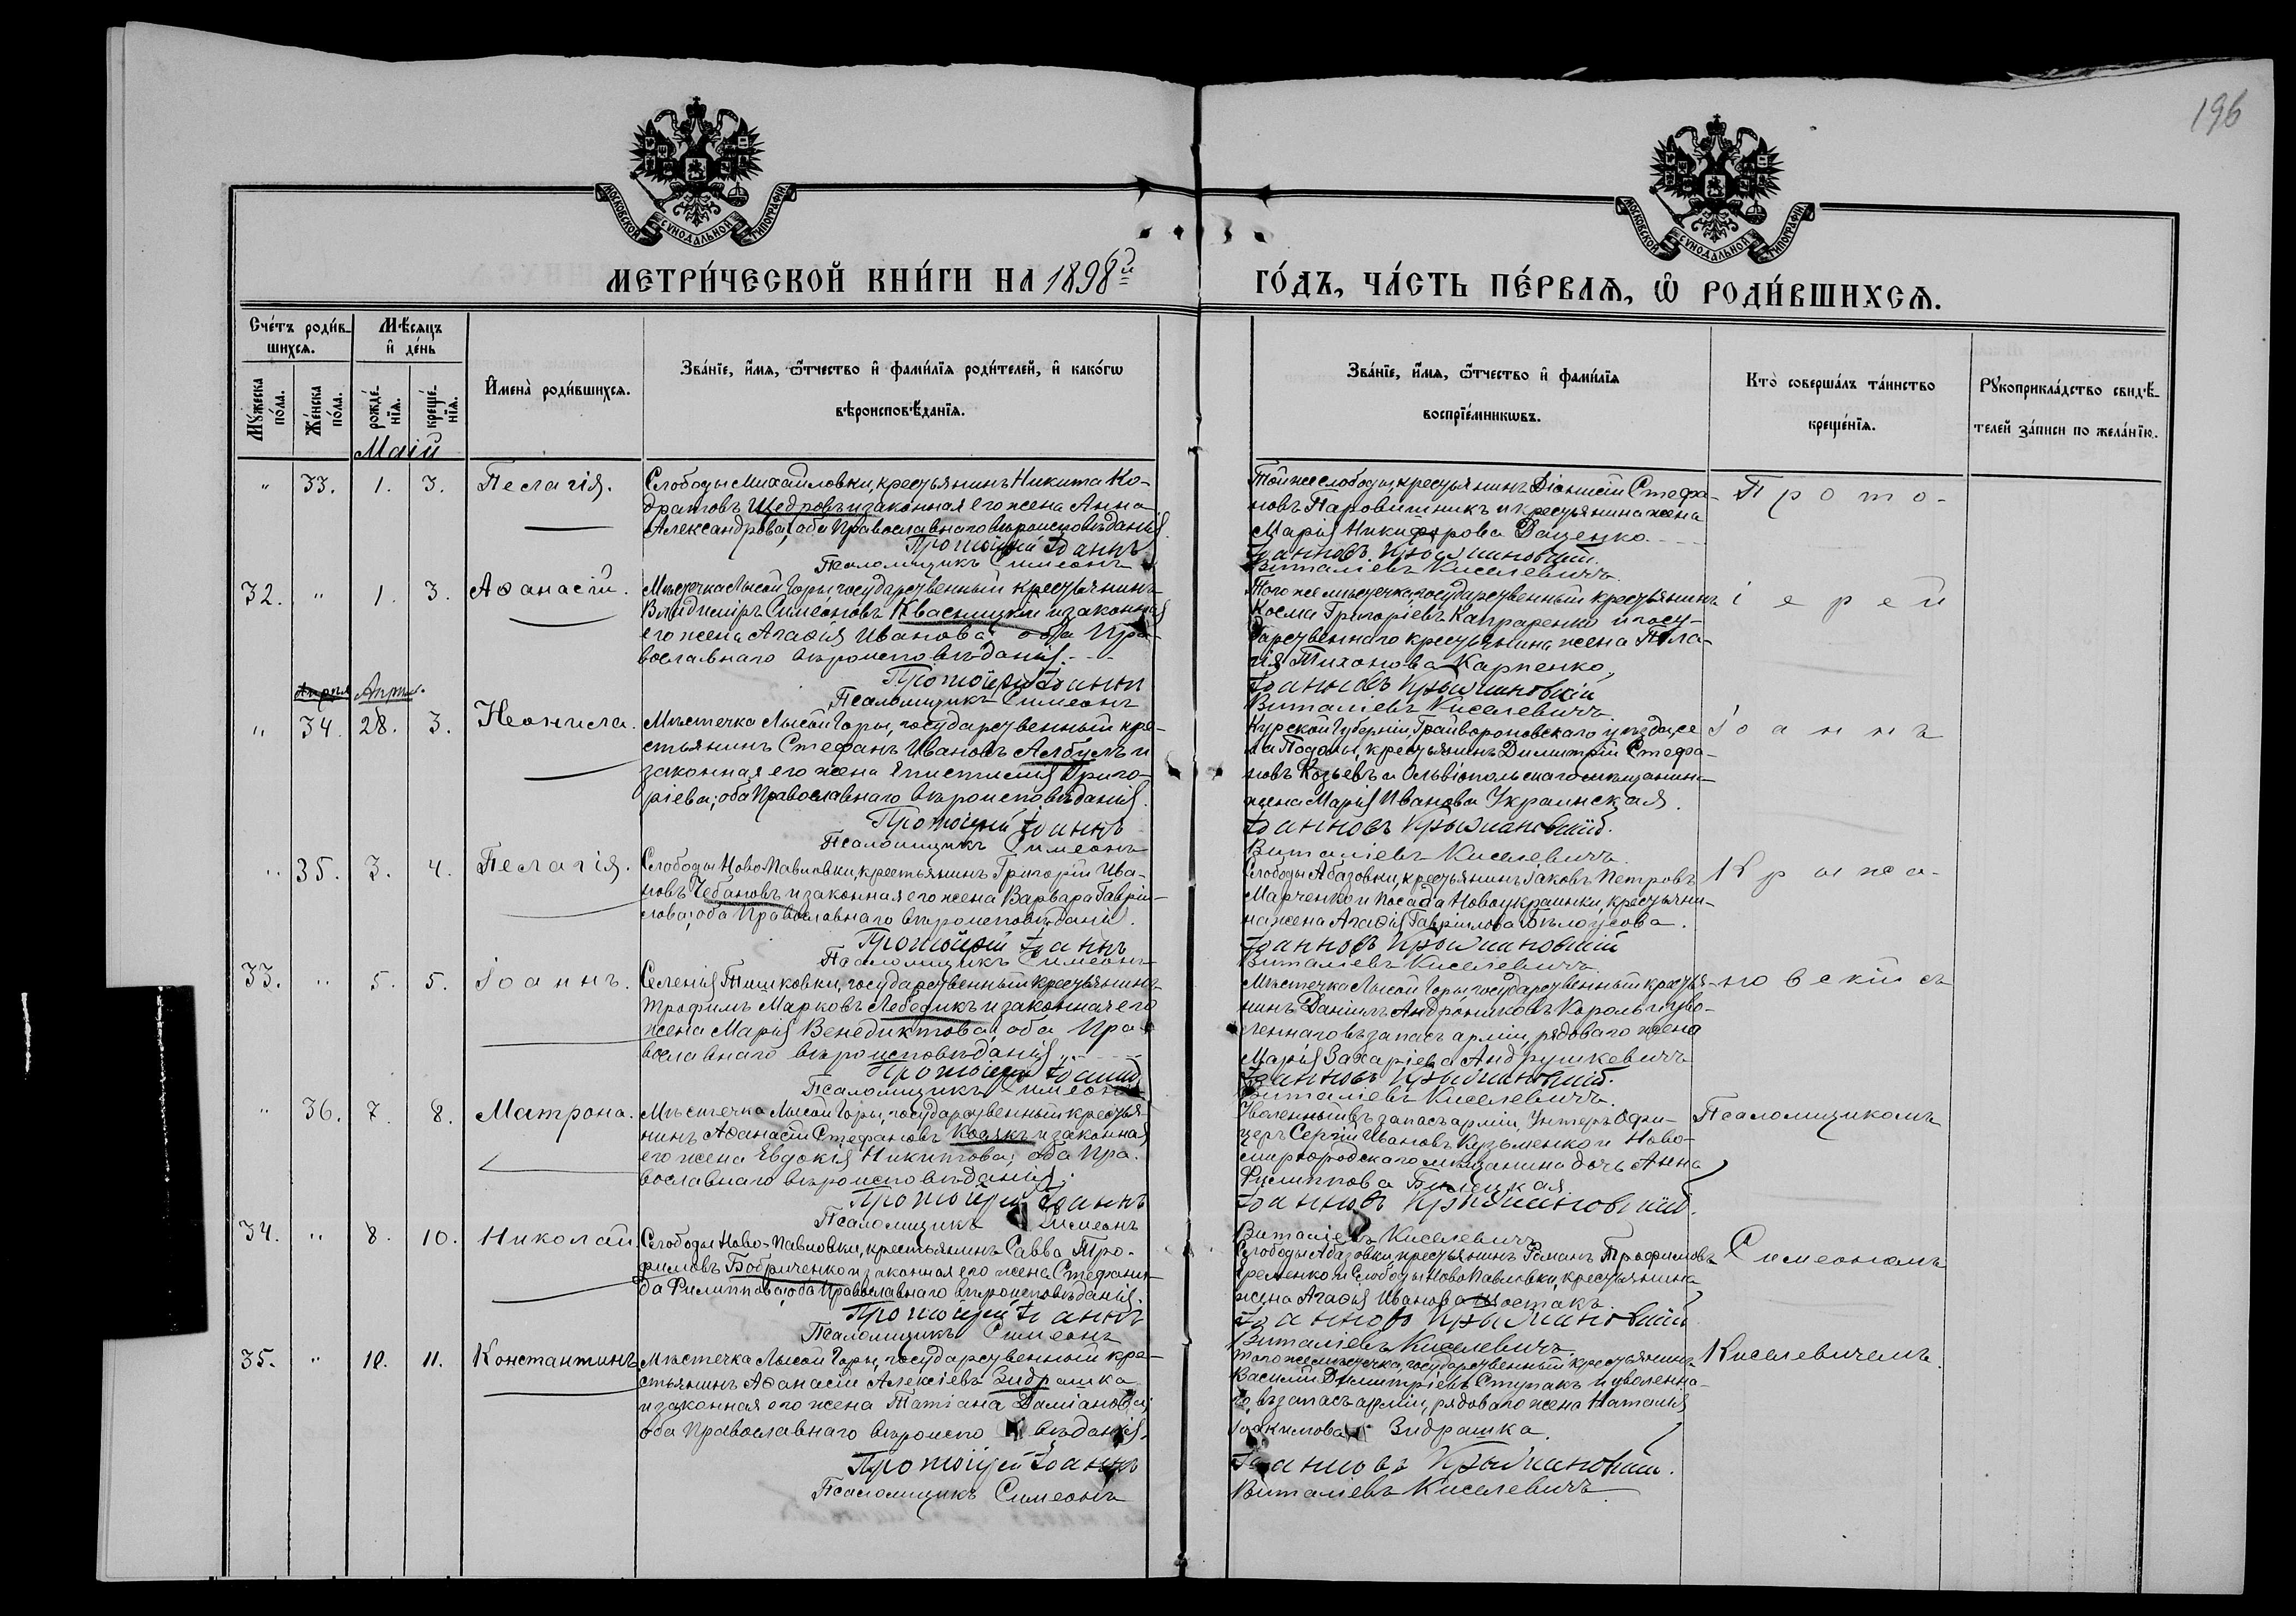 196
МОСКОВСКОЙ СѴНОДАЛЬНОЙ ТИПОГРАФІИ
МОСКОВСКОЙ СѴНОДАЛЬНОЙ ТИПОГРАФІИ
МЕТРИ́ЧЕСКОЙ КНИ́ГИ НА 1898й
ГО́ДЪ, ЧА́СТЬ ПЕ́РВАѦ, Ѡ҆ РОДИ́ВШИХСѦ.
Сче́тъ роди́в-
шихся.
Му́жеска по́ла.
Же́нска по́ла.
Мѣ́сяцъ
и҆ де́нь
рожде́-
нїя.
креще́-
нїя.
И҆мена̀ роди́вшихся.
Зва́нїе, и҆́мя, ѻ҆́тчество и҆ фами́лїя роди́телей, и҆ како́гѡ
вѣроисповѣ́данїя.
Зва́нїе, и҆́мя, ѻ҆́тчество и҆ фами́лїя
воспрїе́мникѡвъ.
Кто̀ соверша́лъ та́инство
креще́нїя.
Рꙋкоприкла́дство свидѣ́-
телей за́писи по жела́нїю.
Маій
" 33. 1. 3. Пелагія.
Слободы Михайловки, крестьянинъ Никита Ко-
дратовъ Щедровъ и законная его жена Анна
Александрова; оба Православнаго вѣроисповѣданія.
Протоіерей Іоаннъ
Псаломщикъ Симеонъ
Той же слободы, крестьянинъ Діонисій Стефа-
новъ Паровишникъ и крестьянина жена
Марія Никифорова Даценко.
Іоанновъ Крыжановскій.
Виталіевъ Киселевичъ.
Прото-
32. " 1. 3. Аѳанасій.
Мѣстечка Лысой Горы, государственный крестьянинъ
Владиміръ Симеоновъ Квасницкій и законная
его жена Агаѳія Иванова; оба Пра-
вославнаго вѣроисповѣданія.
Протоіерей Іоаннъ
Псаломщикъ Симеонъ
Того же мѣстечка государственный крестьянинъ
Косма Григоріевъ Капраренко и госу-
дарственнаго крестьянина жена Пела-
гія Тихонова Карпенко,
Іоанновъ Крыжановскій
Виталіевъ Киселевичъ.
іерей
Апрѣля Апрѣль.
" 34. 28. 3. Неонила.
Мѣстечка Лысой Горы, государственный кре-
стьянинъ Стефанъ Ивановъ Албулъ и
законная его жена Епистимія Григо-
ріева; оба Православнаго вѣроисповѣданія.
Протоіерей Іоаннъ
Псаломщикъ Симеонъ
Курской Губерніи, Грайвороновскаго уѣзда, се-
ла Подолы, крестьянинъ Димитрій Стефа-
новъ Козьевъ и Ольвіопольскаго мѣщанина
жена Марія Иванова Украинская.
Іоанновъ Крыжановскій.
Виталіевъ Киселевичъ.
Іоаннъ
" 35. 3. 4. Пелагія.
Слободы Ново Павловки, крестьянинъ Григорій Ива-
новъ Чебановъ и законная его жена Варвара Гаврі-
лова; оба Православнаго вѣроисповѣданія.
Протоіерей Іоаннъ
Псаломщикъ Симеонъ
Слободы Абазовки, крестьянинъ Іаковъ Петровъ
Марченко и посада Новоукраинки, крестьяни-
на жена Агаѳія Гавріилова Бѣлоусова.
Іоанновъ Крыжановскій
Виталіевъ Киселевичъ.
Крыжа-
33. " 5. 5. Іоаннъ.
Селенія Тишковки, государственный крестьянинъ
Трофимъ Марковъ Лебедикъ и законная его
жена Марія Венедиктова; оба Пра-
вославнаго вѣроисповѣданія.
Протоіерей Іоаннъ
Псаломщикъ Симеонъ
Мѣстечка Лысой Горы, государственный крестья-
нинъ Даніилъ Андрониковъ Король и уво-
леннаго въ запасъ арміи, рядоваго жена
Марія Захаріева Андрушкевичъ
Іоанновъ Крыжановскій.
Виталіевъ Киселевичъ.
новскій съ
" 36. 7. 8. Матрона.
Мѣстечка Лысой Горы, государственный крестья-
нинъ Аѳанасій Стефановъ Козякъ и законная
его жена Евдокія Никитова; оба Пра-
вославнаго вѣроисповѣданія;
Протоіерей Іоаннъ
Псаломщикъ Симеонъ
Уволенный въ запасъ арміи, Унтеръ Офи-
церъ Сергій Ивановъ Кузьменко и Ново-
миргородскаго мѣщанина дочь Анна
Филиппова Билецкая.
Іоанновъ Крыжановскій.
Виталіевъ Киселевичъ
Псаломщикомъ
34. " 8. 10. Николай
Слободы Ново-Павловки, крестьянинъ Савва Тро-
фимовъ Бобриченко и законная его жена Стефани-
да Филиппова; оба Православнаго вѣроисповѣданія.
Протоіерей Іоаннъ
Псаломщикъ Симеонъ
Слободы Абазовки, крестьянинъ Романъ Трофимовъ
Еременко и Слободы Ново Павловки, крестьянина
жена Агаѳія Иванова Шостакъ.
Іоанновъ Крыжановскій
Виталіевъ Киселевичъ.
Симеономъ
35. " 10. 11. Константинъ
Мѣстечка Лысой Горы, государственный кре-
стьянинъ Аѳанасій Алексіевъ Зидрашка
и законная его жена Татіана Даміанова;
оба Православнаго вѣроиспо вѣданія.
Протоіерей Іоаннъ
Псаломщикъ Симеонъ
Того же мѣстечка, государственный крестьянинъ
Василій Димитріевъ Ступакъ и уволенна-
го въ запасъ арміи, рядоваго жена Наталія
Іоакимова Зидрашка.
Іоанновъ Крыжановскій.
Виталіевъ Киселевичъ
Киселевичемъ.